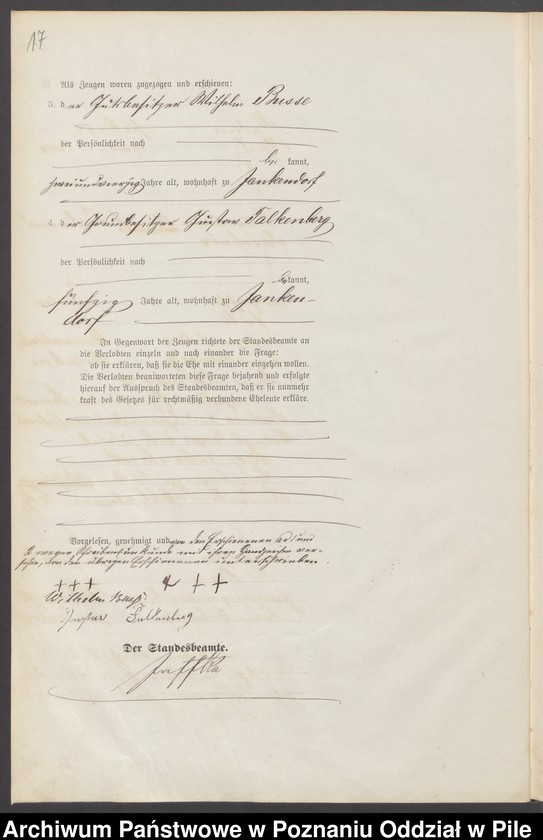 17
Als Zeugen waren zugezogen und erschienen:
3. der Gutsbesitzer Wilhelm Busse
der Persönlichkeit nach
be kannt,
zweiundvierzig Jahre alt, wohnhaft zu Jankendorf
4. der Grundbesitzer Gustav Falkenberg
der Persönlichkeit nach
be kannt,
fünfzig Jahre alt, wohnhaft zu Janken-
dorf
In Gegenwart der Zeugen richtete der Standesbeamte an
die Verlobten einzeln und nach einander die Frage:
ob sie erklären, daß sie die Ehe mit einander eingehen wollen.
Die Verlobten beantworteten diese Frage bejahend und erfolgte
hierauf der Ausspruch des Standesbeamten, daß er sie nunmehr
kraft des Gesetzes für rechtmäßig verbundene Eheleute erkläre.
Vorgelesen, genehmigt und von den Erschienenen ad 1 und
2 wegen Schreibensunkunde mit ihren Handzeichen ver-
sehen, von den übrigen Erschienenen unterschrieben.
+++ +++
Wilhelm Busse
Gustav Falkenberg
Der Standesbeamte.
Archiwum Państwowe w Poznaniu Oddział w Pile